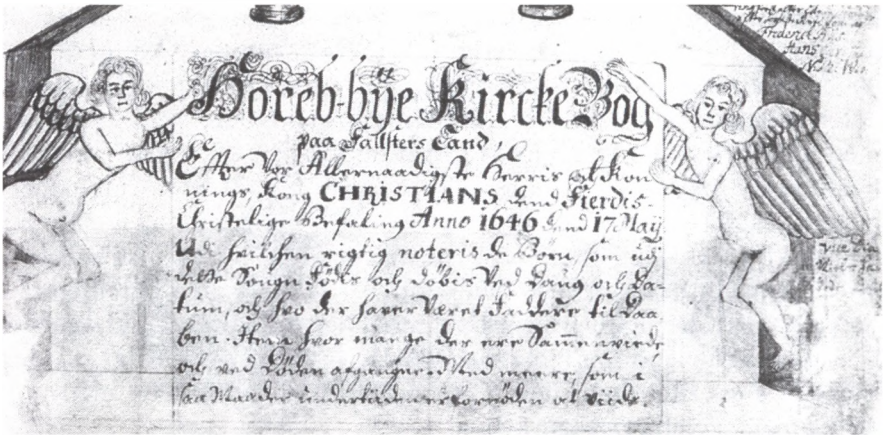 Höreb-bÿe Kircke Bog
paa Fallsters Land,
Effter Vor Allernaadigste Herris oc Kon-
nings, Kong CHRISTIANS dend Fierdis
Christelige Befaling Anno 1646 dend 17 Maÿ
Udi hvilchen rigtig noteris de Börn, som udj
dette Sougn Födis och döbis Ved Daug och Da-
tum, och hvo der haver Været Faddere til Daa-
ben. Item hvor mange der ere Sammenviede
och ved Döden afgangne. Med meere, som i
saa Maader undertiden er fornöden at viide.
Frederic
Hans